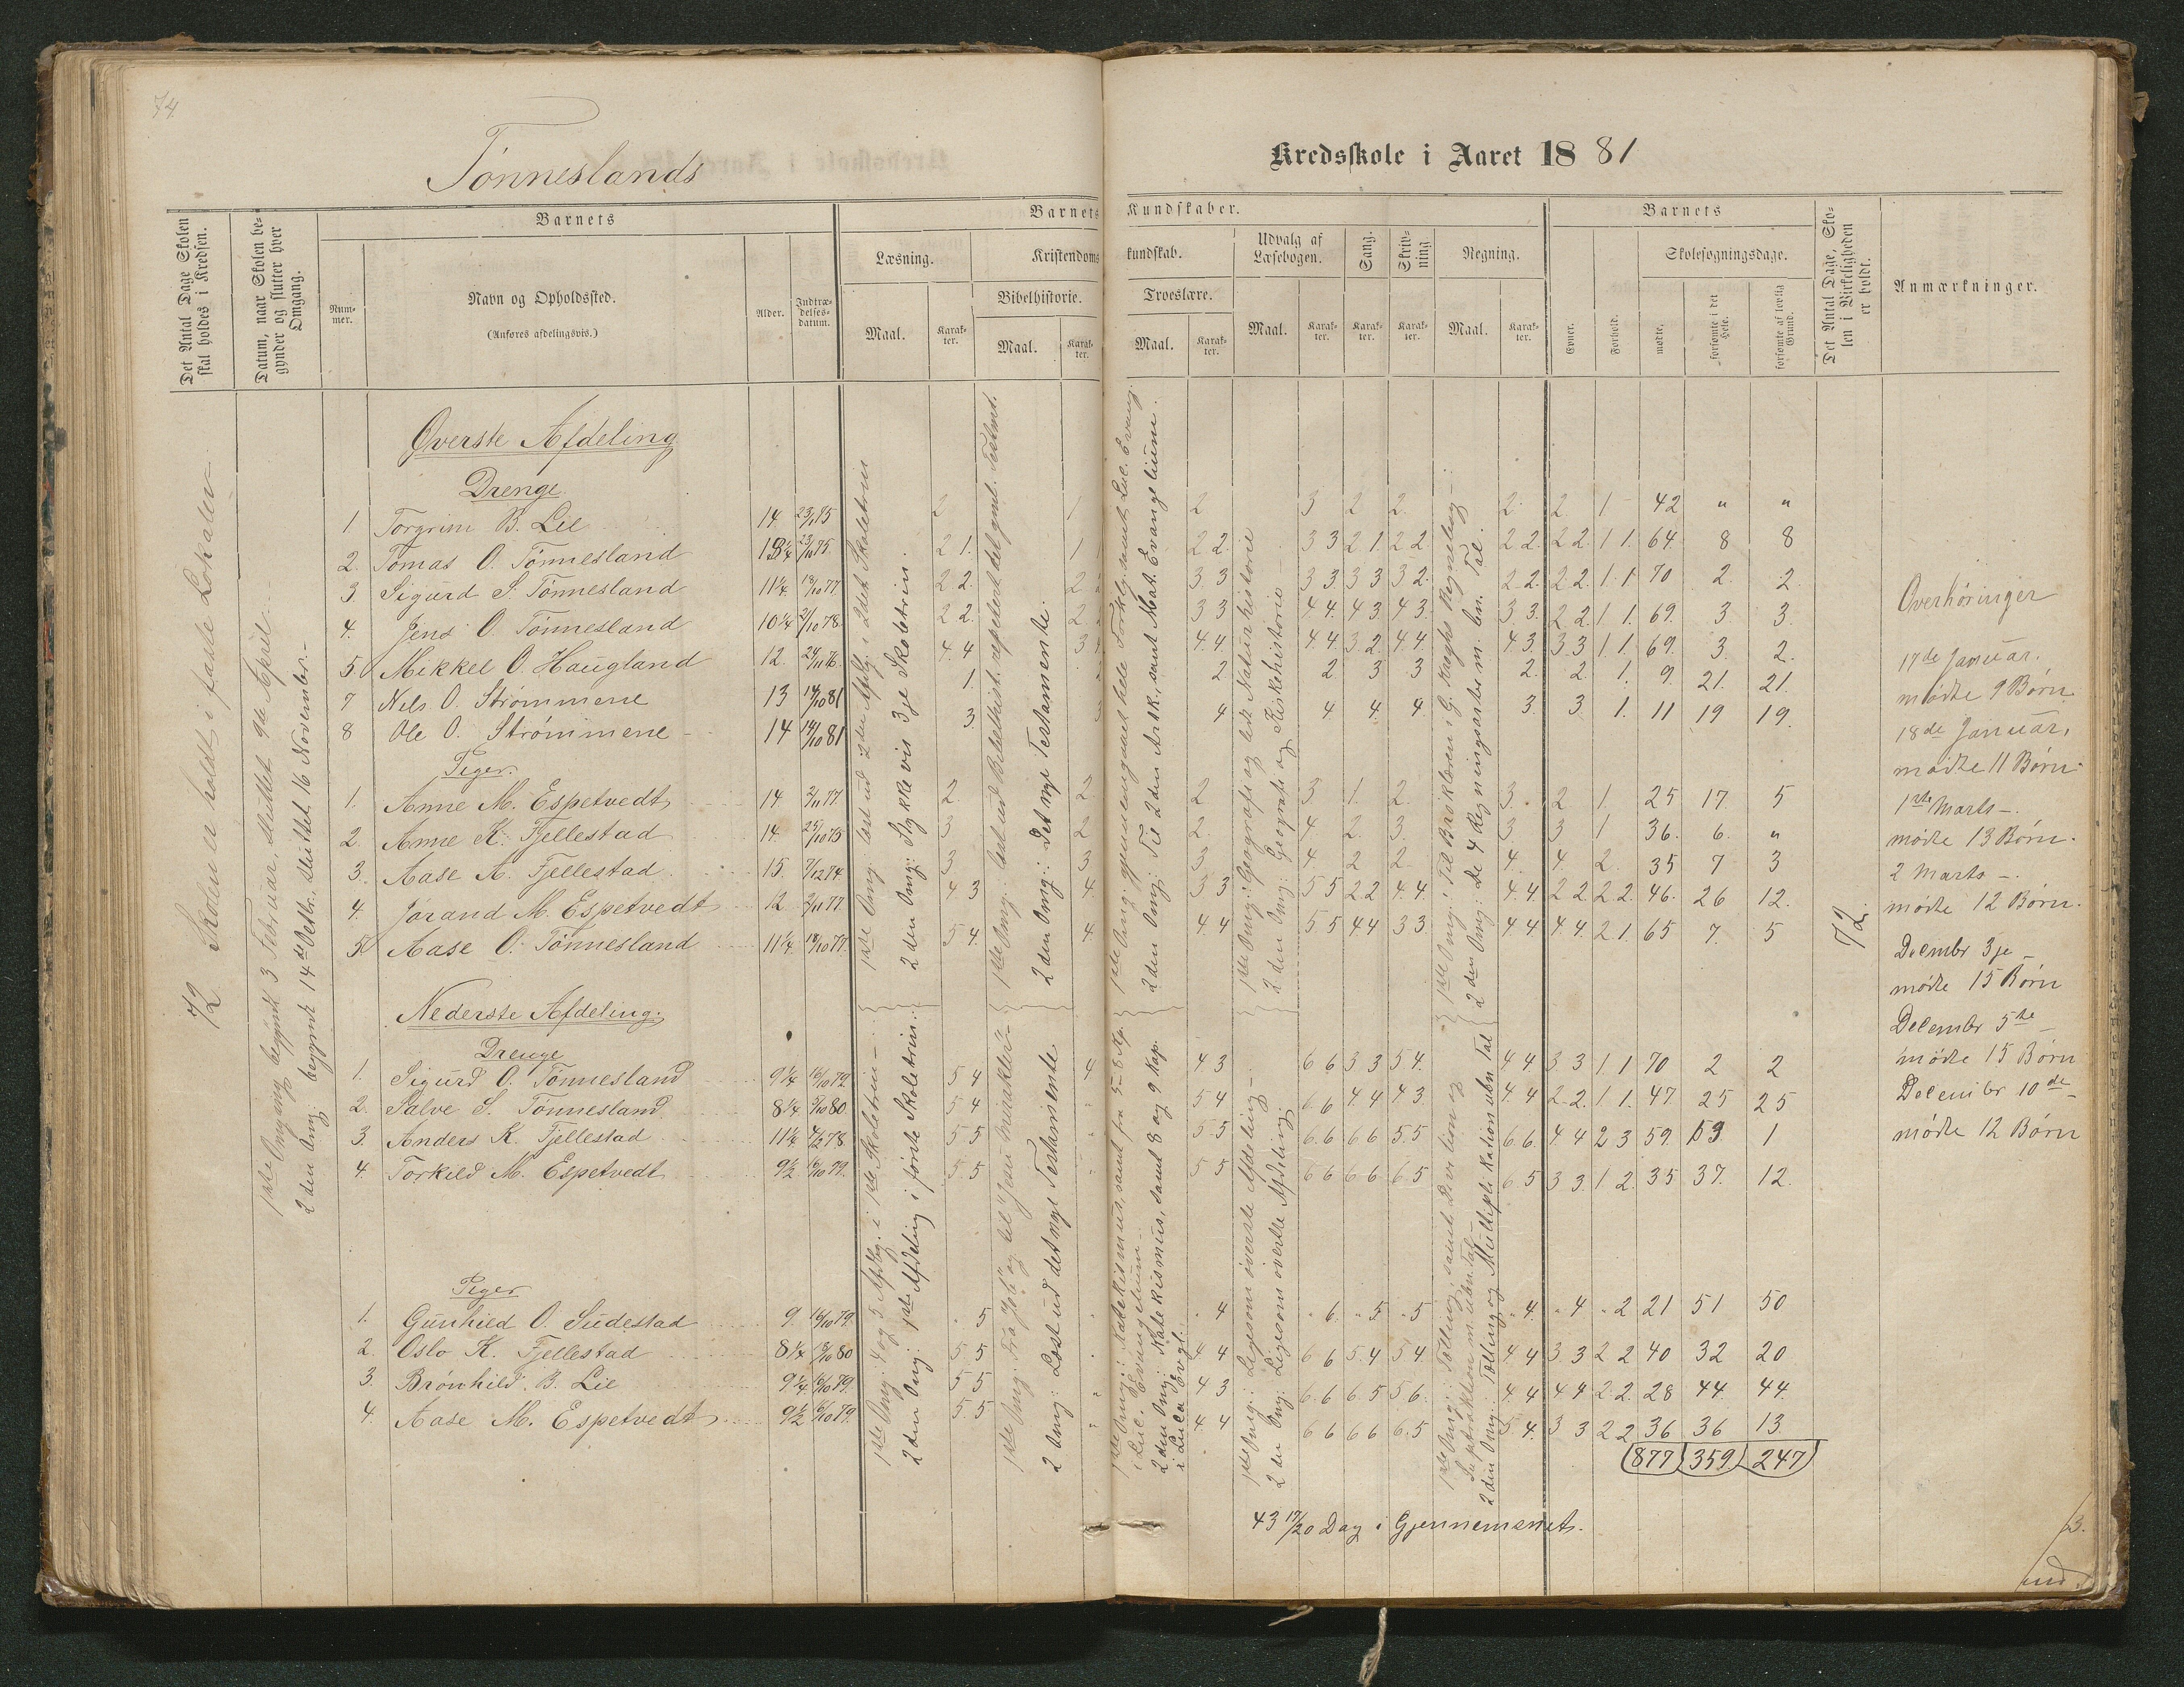 74
Tønneslands
Kredsskole i Aaret 1881
Det Antal Dage Skolen skal holdes i Kredsen.
Datum, naar Skolen begynder og slutter hver Omgang.
Barnets
Nummer.
Navn og Opholdssted.
(Anføres afdelingsvis.)
Alder.
Indtrædelsesdatum.
Barnets
Kundskaber.
Læsning.
Maal.
Karakter.
Kristendoms
kundskab.
Bibelhistorie.
Maal.
Karakter.
Troeslære.
Maal.
Karakter.
Udvalg af Læsebogen.
Maal.
Karakter.
Sang.
Karakter.
Skrivning
Karakter.
Regning.
Maal.
Karakter.
Barnets
Evner.
Forhold.
Skolesøgningsdage.
mødte.
forsømte i det Hele.
forsømte af lovlig Grund.
Det Antal Dage, Skolen i Virkeligheden er holdt.
Anmærkninger.
72 Skolen er holdt i faste Lokaler
1ste Omgang begyndt 3 Februar, sluttet 9de April
2den Omg: begyndt 14de Octbr., sluttet 16 November.
Øverste Afdeling
Drenge
1 Torgrim B. Lie 14 2 1 2 3 2 2 2 2 1 42 " "
2. Tomas O. Tønnesland 13¼ 23/10 75 2 1. 1 2 2. 3 3 2 1. 2 2 2 2. 2 2. 1 1. 64 8 8
3 Sigurd S. Tønnesland 11¼ 18/10 77 2 2. 2 3 3 3 3 3 3 3 2. 2 2. 2 2. 1 1 70 2. 2
4. Jens O. Tønnesland 10¼ 21/10 78 2 2. 2 3 3 4 4. 4 3 4 3. 3 3. 2 2 1 1. 69. 3 3.
5. Mikkel O. Haugland 12. 24/11 76 4 4 3 4 4. 4 4. 3 2. 4 4. 4 3. 3 3 1 1. 69. 3. 2.
7 Nils O. Strømmene 13 14/10 81 1. 2 2 3 3 2. 2. 1. 9. 21. 21.
8 Ole O. Strømmene 14 14/10 81 3. 3 4 4 4. 4. 3. 3. 1. 11 19 19.
Piger.
1. Anne M. Espetvedt 14 2/11 77. 2. 2 2 3 1. 2. 3. 2 1. 25 17. 5
2. Anne K. Fjellestad 14. 25/10 75 3 2 2. 4 2. 3. 3 3 1 36. 6. "
3. Aase A. Fjellestad 15. 7/12 74. 3 3 3 4 2 2 4. 4 2. 35 7 3
4. Jørand M. Espetvedt 12 2/11 77 4 3 4. 3 3 5 5 2 2 4. 4 4. 4. 2 2. 2 2. 46. 26 12.
5. Aase O. Tønnesland 11¼ 18/10 77. 5 4. 4 4 4 5 5 4 4 3 3. 4 4. 4 4. 2 1. 65 7. 5
72.
Nederste Afdeling.
Drenge
1. Sigurd O. Tønnesland 9¼ 16/10 79. 5 4 4 4 3 6 6 3 3 5 4. 4 4 3 3 1 1 70 2 2
2. Salve S. Tønnesland 8¼ 5 4 5 4 6 6 4. 4 4 3. 4 4 2. 2. 1 1. 47 25 25
3. Anders K. Fjellestad 11¼ 5 5 5 5 6 6 6 6 5. 5 6 6. 4. 4 2 3 59. 1
4. Torkild M. Espetvedt 9½ 16/10 79. 5. 5 5 5 6 6 6 6 6 5 6 5 3 3 1 2. 35 37. 12.
Piger
1. Gunhild O. Sudestad 9. 16/10 79. " 5 " 4 " 6. " 5 " 5 " 4. " 4 " 2 21 51 50
2. Oslo K. Fjellestad 8¼ 5 5 4 4 6 6 5. 4 5 4. 4 4 3. 3 2 2 40 32 20
3. Brønhild. B. Lie 9¼ 16/10 79. 5 5 4 3 6. 6 6 5 5 6. 4 4 4 4 2. 2. 28 44. 44.
4. Aase M. Espetvedt 9½ 16/10 79. 5. 5 4 4 6 6 6 6 6. 5 5. 4. 3 3 2 2 36 36 13.
877 359 247
43 17/20 Dag i Gjennemsnit.
1ste Omg: læst ud 2den Afdlg. i 2det Skoletrin
2den Omg: Stykkevis 3je Skoletrin.
1ste Omg: læst ud Bibelhist. repetert det gml. Testmt.
2den Omg: Det nye Testamente.
1ste Omg: gjennemgaaet hele Forklg. samt Luc. Evang.
2den Omg: Til 2den Artk., samt Mat. Evangelium.
1ste Omg: Geografi og lidt Naturhistorie
2den Omg: Geografi og Kirkehistorie
1ste Omg: Til Brøklæren i G. Kraghs Regnebog
2den Omg: De 4 Regningsarter m. bn. Tal.
1ste Omg: 4 og 5 Afdlg. i 1ste Skoletrin
2den Omg: 1ste Afdeling i første Skoletrin.
1ste Omg: Fra "Job" og til "Jesu mirakler"
2 Omg: Læst ud det nye Testamente.
1ste Omg: Katekismus, samt fra 5–8 Kp. i Luc. Evangelium
2den Omg: Katekismus, samt 8 og 9 Kap. i Luca Evgl.
1ste Omg: Ligesom øverste Afdeling
2den Omg: Ligesom øverste Afdeling.
1ste Omg: Tælling, samt Division og Suptraktion m. ubn. Tal
2den Omg: Tælling og Multiplikation ubn. Tal
Overhøringer
17de Januar.
mødte 9 Børn.
18de Januar,
mødte 11 Børn.
1ste Marts –.
mødte 13 Børn.
2 Marts –.
mødte 12 Børn.
Decembr 3je –
mødte 15 Børn
Decembr 5te –
mødte 15 Børn
Decembr 10de –
mødte 12 Børn